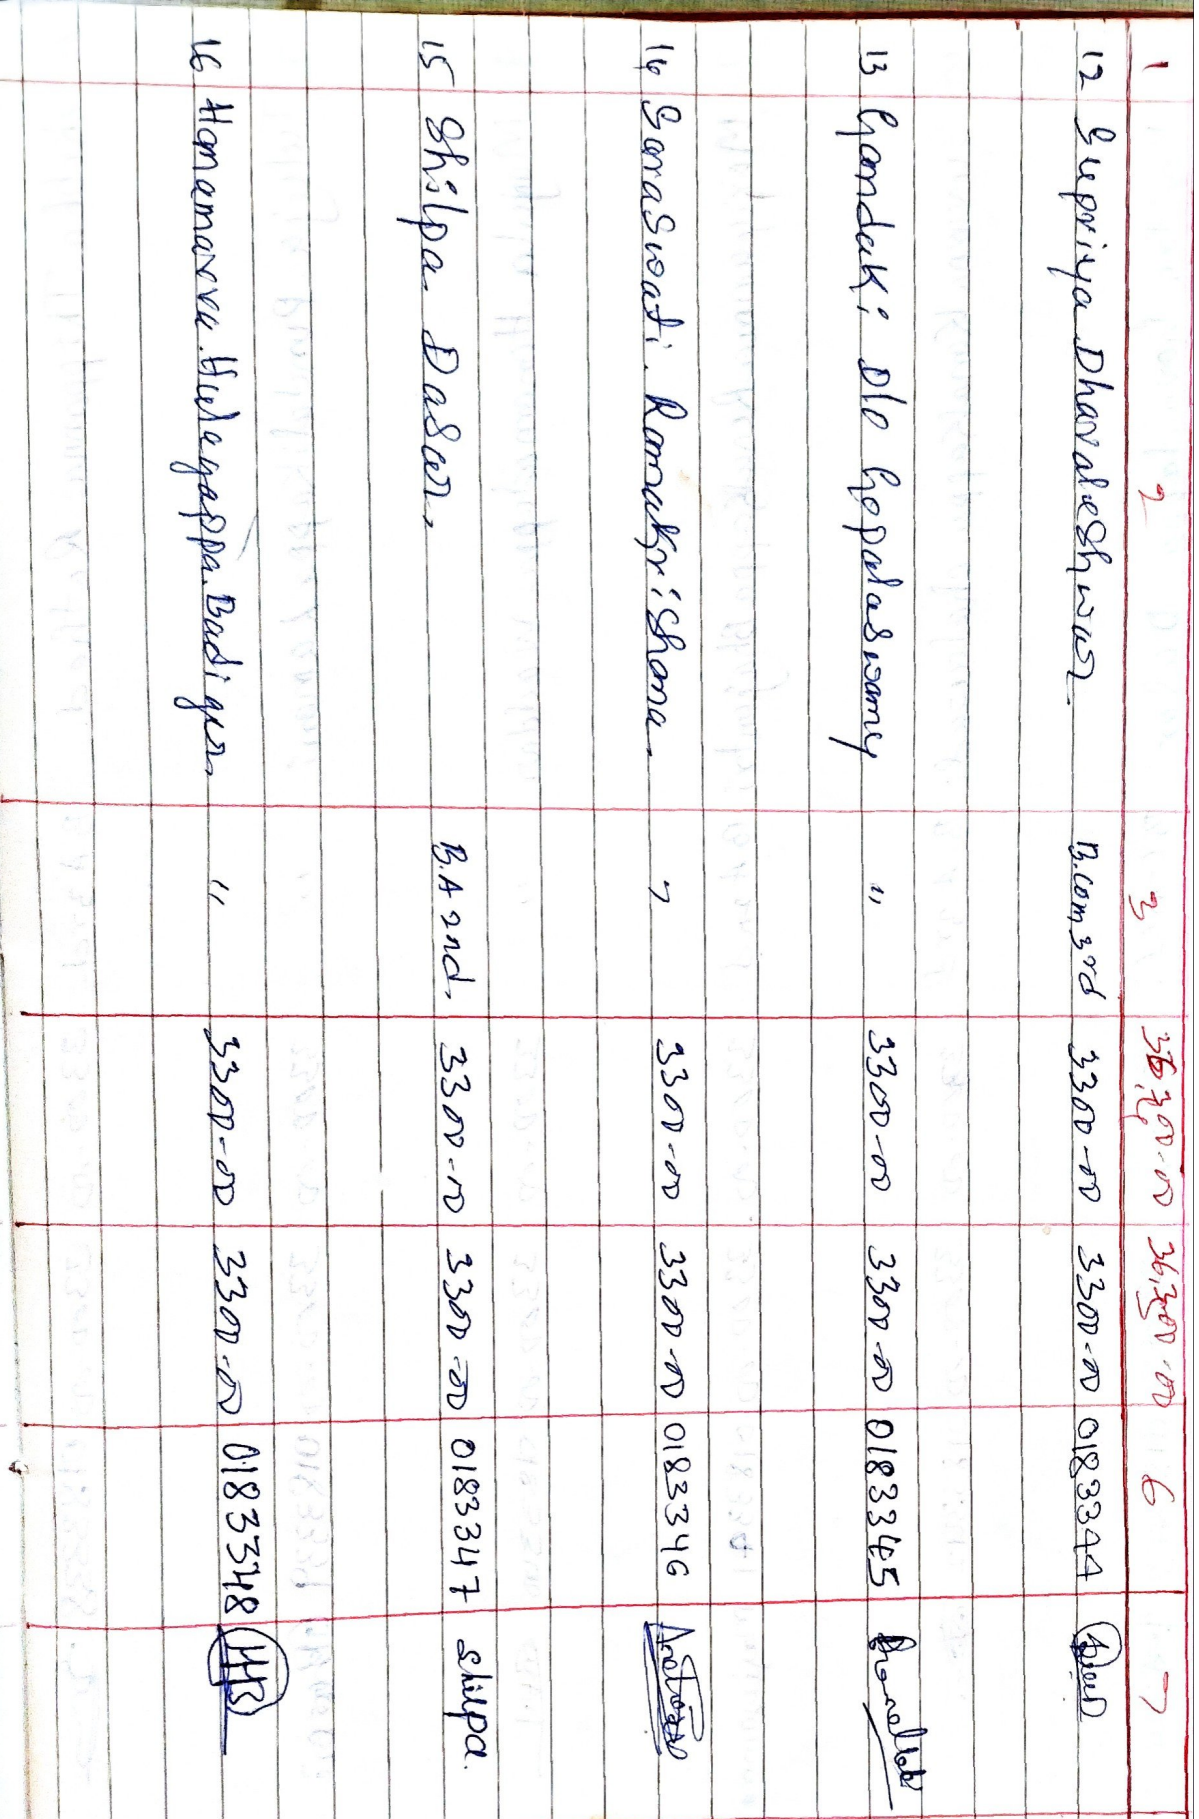 1 2 3 36,300-00 36,300-00 6 7
12 Supriya Dhavaleshwar. B.com 3rd 3300-00 3300-00 0183344
13 Gandaki D/o Gopalaswamy " 3300-00 3300-00 0183345
14 Saraswati. Ramakrishana. " 3300-00 3300-00 0183346
15 Shilpa. Dasar. B.A 2nd. 3300-00 3300-00 0183347 Shilpa.
16 Hanamavva.Hulagappa.Badiger. " 3300-00 3300-00 0183348 HHB